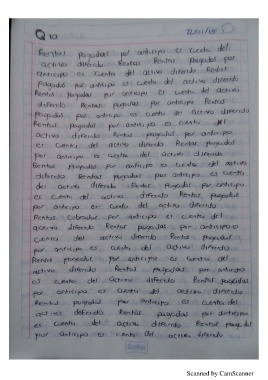 Q 10
Rentas pagadas por anticipo es cuenta del
activo diferido Rentas Rentas pagadas por
anticipo es cuenta del activo diferido Rentas
pagadas por anticipo es cuenta del activo diferido
Rentas pagadas por anticipo es cuenta del activo
diferido Rentas pagadas por anticipo Rentas
pagadas por anticipo es cuenta del activo diferido
Rentas pagadas por anticipo es cuenta del
activo diferido Rentas pagadas por anticipo
es cuenta del activo diferido Rentas pagadas
por anticipo es cuenta del activo diferido
Rentas pagadas por anticipo es cuenta del activo
diferido Rentas pagadas por anticipo es cuenta
del activo diferido Rentas pagadas por anticipo
es cuenta del activo diferido Rentas pagadas
por anticipo es cuenta del activo diferido
Rentas cobradas por anticipo es cuenta del
activo diferido Rentas pagadas por anticipo es
cuenta del activo diferido Rentas pagadas
por anticipo es cuenta del activo diferido
Rentas pagadas por anticipo es cuenta del
activo diferido Rentas pagadas por anticipo
es cuenta del activo diferido Rentas pagadas
por anticipo es cuenta del activo diferido
Rentas pagadas por anticipo es cuenta del
activo diferido Rentas pagadas por anticipo
es cuenta del activo diferido Rentas pagadas
por anticipo es cuenta del activo diferido
Scanned by CamScanner